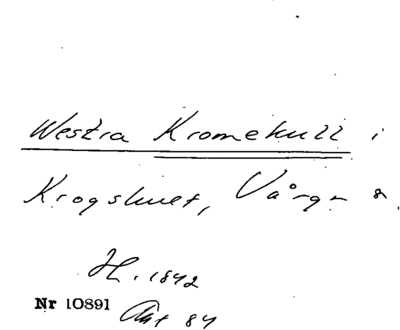 Westra Kromekull i
Krogshult, Vårgn s.
H. 1842
Nr 10891
Akt 84